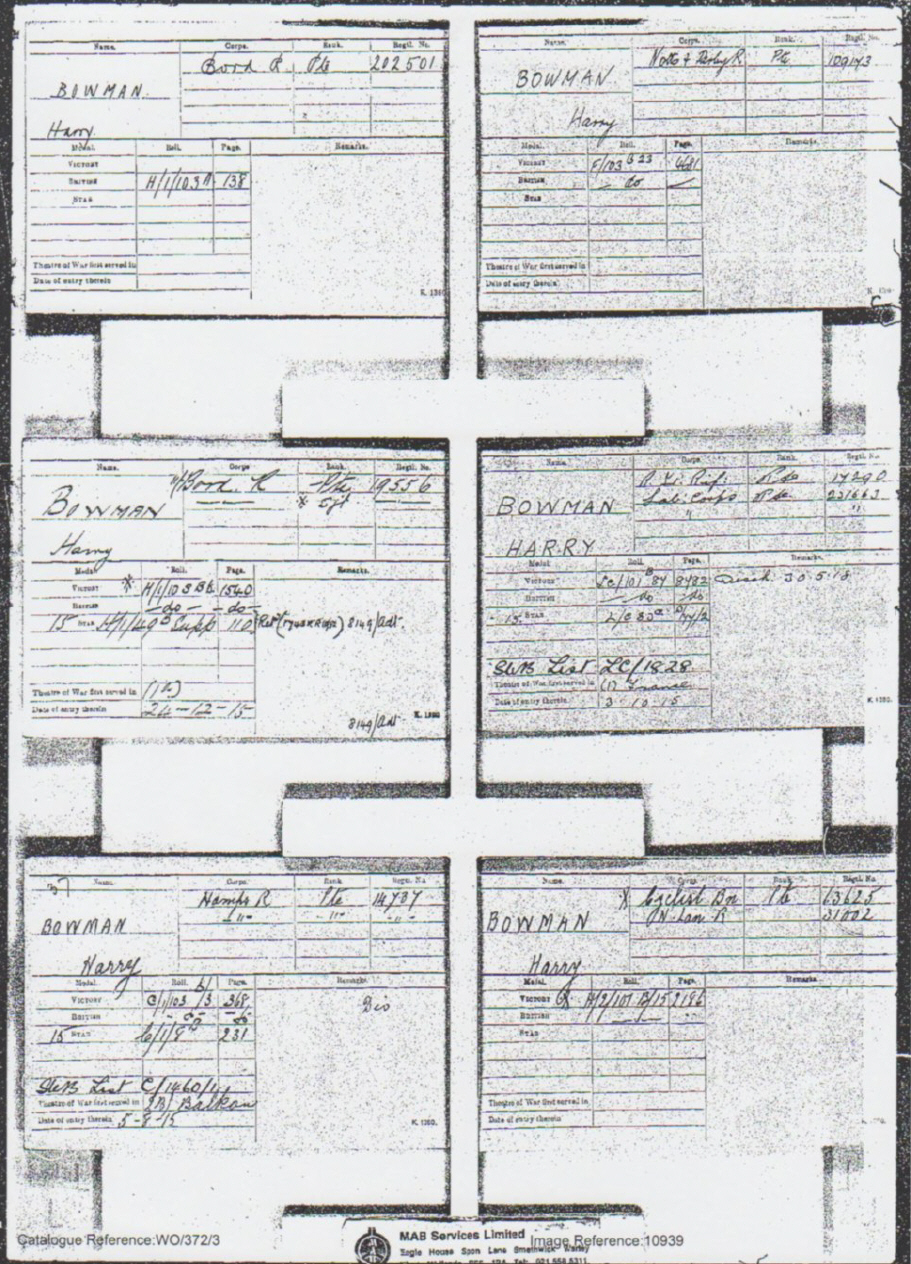 Name. Corps. Rank. Regtl. No.
Bord R Pte 202501
BOWMAN.
Harry
Medal. Roll. Page. Remarks.
Victory
British H/1/103 138
Star
Theatre of War first served in
Date of entry therein
K. 1380.
Name. Corps. Rank. Regtl. No.
Notts & Derby R. Pte 109143
BOWMAN
Harry
Medal. Roll. Page. Remarks.
Victory F/103 B 23
British do
Star
Theatre of War first served in
Date of entry therein
Name. Corps. Rank. Regtl. No.
Bord R Pte 19556
BOWMAN
Harry
Medal Roll. Page. Remarks.
Victory H/1/103 B6 1540
British -do- -do-
15 Star H/1/49 B Supp 110 8149/Adt.
Theatre of War first served in
Date of entry therein 24-12-15
8149/Adt K. 1380
Name. Corps Rank. Regtl. No.
R. Ir. Rif:
Lab. Corps 231663
BOWMAN
HARRY
Medal Roll. Page. Remarks.
Victory LC/101 B 84 8482 Disch 30.5.18
British do do
15 Star
SWB List LC/1828
Theatre of War first served in (1) France
Date of entry therein 3 10 15
K. 1380.
37 Name. Corps. Rank Regtl. No
Hamps R Pte 14707
-"- -"- -"-
BOWMAN
Harry
Medal. Roll. Page. Remarks
Victory C/1/103 B/3 368 Dis
British do do
15 Star C/1/8 231
SWB List C/1460/1
Theatre of War first served in (2B) Balkan
Date of entry therein 5-8-15
K. 1380.
Name. Corps Rank. Regtl. No.
X Cyclist Bn Pte
N. Lan R 31002
BOWMAN
Harry
Medal. Roll. Page. Remarks
Victory
British
Star
Theatre of War first served in
Date of entry therein
Catalogue Reference:WO/372/3
MAB Services Limited
Image Reference:10939
Eagle House Spon Lane Smethwick Warley